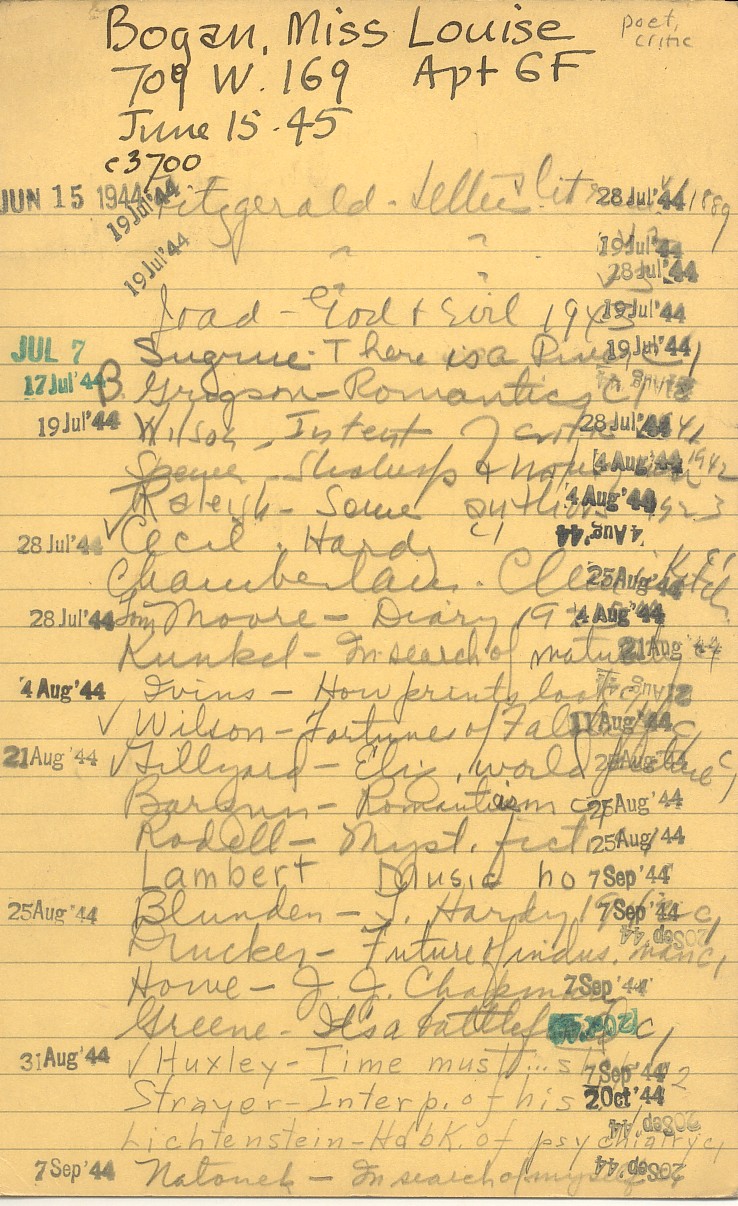 Bogan, Miss Louise poet, critic
709 W. 169 Apt 6F
June 15-45
c3700
JUN 15 1944 19 Jul '44 Fitzgerald - Letters & lit 28 Jul '44 1889
19 Jul '44 " " 19 Jul '44
28 Jul '44
Joad - God & Evil 1943 19 Jul '44
JUL 7 Sugrue - There is a River c1 19 Jul '44
17 Jul '44 B Grigson - Romantics c1 Aug '44
19 Jul '44 Wilson - Intent of critic 28 Jul '44 1941
Spencer - Shakesp & nature 4 Aug '44 1942
Raleigh - Some authors 4 Aug '44 1923
28 Jul '44 ✓ Cecil - Hardy c1 4 Aug '44
Chamberlain - Clementine Kitch. c1 25 Aug '44
28 Jul '44 Tom Moore - Diary 19 4 Aug '44
Kunkel - In search of maturity c1 21 Aug '44
4 Aug '44 Ivins - How prints look c1 21 Aug '44
✓ Wilson - Fortunes of Falstaff c1 11 Aug '44
21 Aug '44 ✓ Tillyard - Eliz. world picture c1 25 Aug '44
Barzun - Romanticism c1 25 Aug '44
Rodell - Myst. fict. 25 Aug '44
Lambert Music ho 7 Sep '44
25 Aug '44 Blunden - T. Hardy 19 c1 7 Sep '44
Drucker - Future of indus. man c1 20 Sep '44
Howe - J. J. Chapman 7 Sep '44
Greene - It's a battlefield c1
31 Aug '44 ✓ Huxley - Time must ... s 7 Sep '44
Strayer - Interp. of his 2 Oct '44
Lichtenstein - Hdbk. of psychiatry c1 20 Sep '44
7 Sep '44 Natonek - In search of myself 20 Sep '44